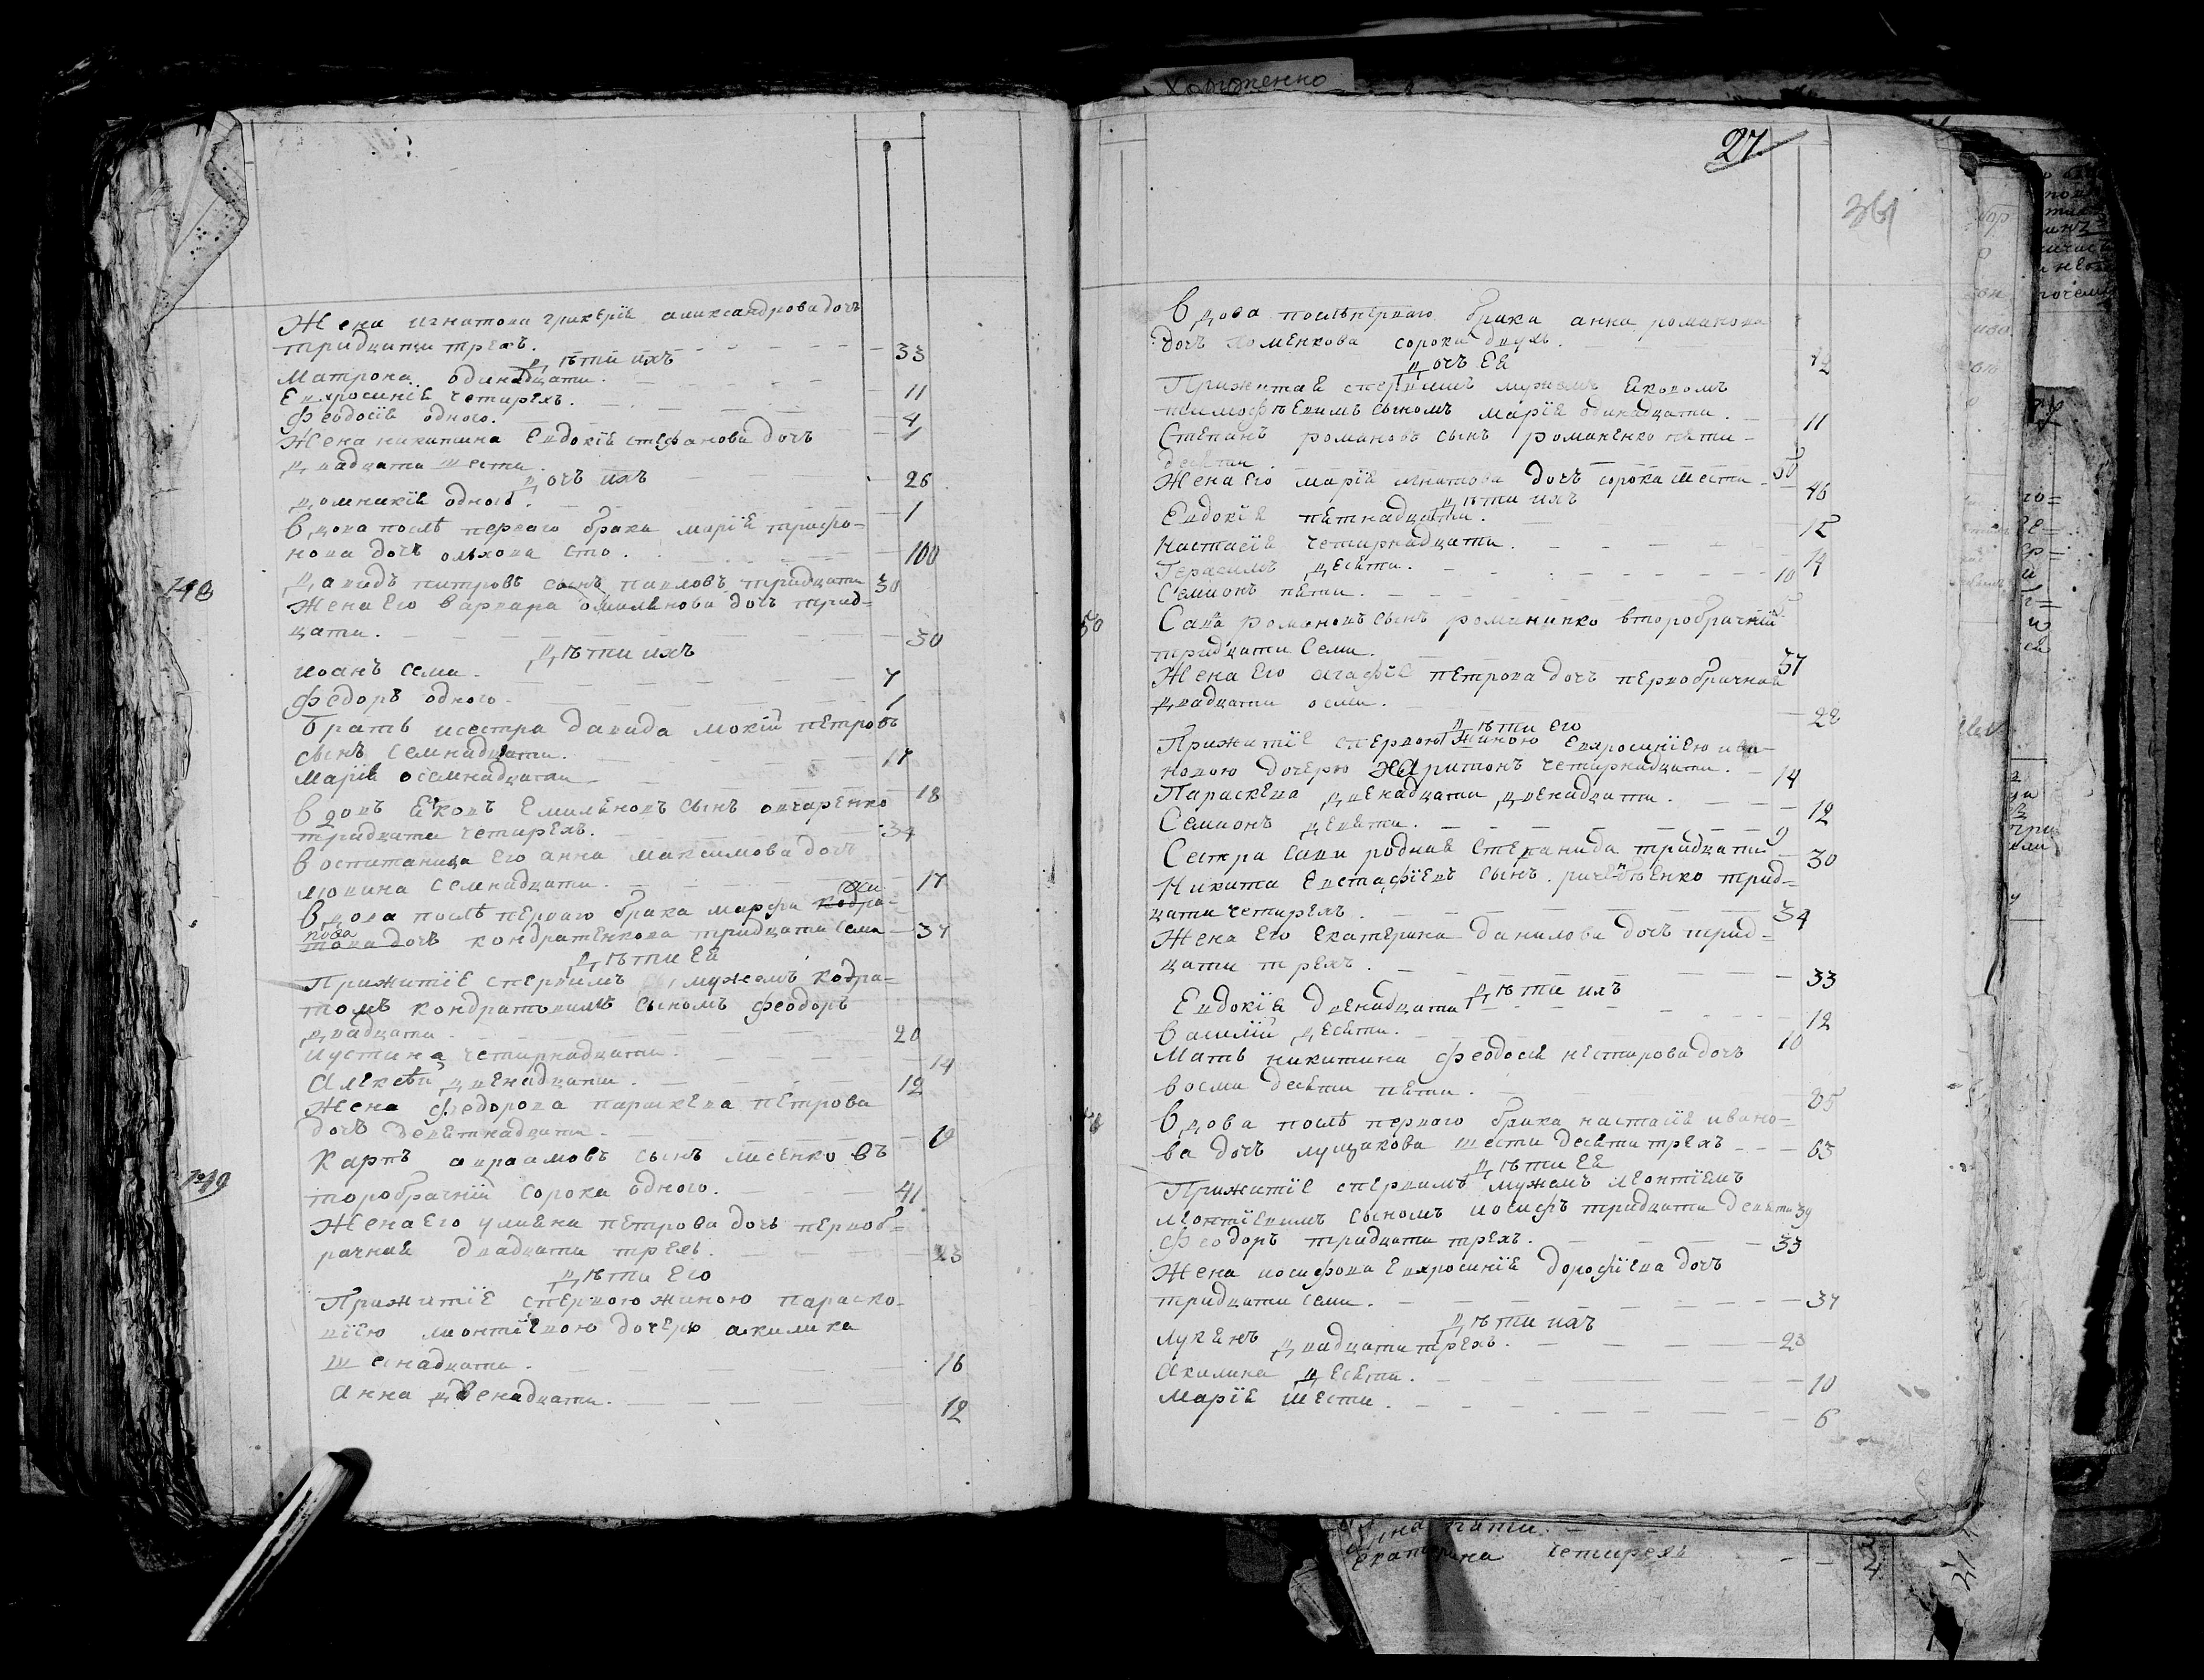 Жена игнатова гликерїѣ александрова дочъ
тридцати трехъ. 33
Дѣти ихъ
Матрона одинадцати. 11
Евхросинїѣ четирехъ. 4
Феодосїѣ одного. 1
Жена никитина Евдокїѣ стефанова дочъ
двадцати шести. 26
Дочъ ихъ
Домникїѣ одного. 1
Вдова послѣ первого брака марїѣ трифо-
нова дочъ олхова сто. 100
148 Давидъ питровъ сынъ павловъ тридцати 30
Жена Его варвара омилѣнова дочъ трид=
цати. 30
Дѣти ихъ
иоанъ семи. 7
федоръ одного. 1
братъ исестра давида мокїй петровъ
сынъ семнадцати. 17
Марїѣ осемнадцати 18
Вдовъ ѣковъ Емилѣновъ сынъ овчаренко
тридцати четирехъ. 34
воспитаница Его анна максимова дочъ
семнадцати. 17
Вдова послѣ первого брака марфа
дочъ кондратенкова тридцати семи 37
Дѣти Ей
Прижитїе спервимъ мужемъ кодра-
томъ кондратовимъ сыномъ феодоръ
двадцати 20
иустина четирнадцати. 14
Алексѣй двенадцати. 12
Жена федорова параскева петрова
дочъ деветнадцати. 19
149 Карпъ авраамовъ сынъ лисенко въ
торобрачнїй сорока одного. 41
Жена Его улиѣна петрова дочъ первоб-
рачнаѣ двадцати трехъ. 23
Дѣти Его
Прижитїе спервою жиною параско-
вїею леонтїевою дочерю акилина
шеснадцати. 16
Анна двенадцати. 12
27
361
Вдова послѣпервого брака анна романова
дочъ сорока двухъ. 42
Дочъ Еѣ
Прижитаѣ спервимъ мужомъ ѣковомъ
тимофѣевимъ сыномъ марїѣ одинадцати. 11
Степанъ романовъ сынъ романенко пѣти-
десѣти 50
Жена Его марїѣ игнатова дочъ сорока шести 46
Дѣти ихъ
Евдокїѣ пѣтнадцати. 15
Настасїѣ четирнадцати. 14
Герасимъ десѣти. 10
Семионъ пѣти. 5
50 Сава романовъ сынъ романенко второбрачнїй
тридцати семи. 37
Жена Его агафїѣ петрова дочъ первобрачнаѣ
двадцати осми. 28
Дѣти Его
Прижитїе спервою жиною Евхросинїею ива-
новою дочерю харитонъ четирнадцати. 14
Параскева двенадцати двенадцати. 12
Семионъ девѣти. 9
Сестра сави роднаѣ Степанида тридцати 30
Никита Евстафїевъ сынъ трид=
цати четирехъ. 34
Жена Его Екатерина данилова дочъ трид=
цати трехъ. 33
Дѣти ихъ
Евдокїѣ двенадцати 12
Василїй десѣти. 10
Мать никитина феодосїѣ нестирова дочъ
восми десѣти пѣти. 85
Вдова послѣ первого брака настасїѣ ивано-
ва дочъ лущакова шести десѣти трехъ 63
Дѣти Еѣ
Прижитїе спервимъ мужемъ леонтїемъ
леонтїевимъ сыномъ иосифъ тридцати девѣти 39
Феодоръ тридцати трехъ. 33
Жена иосифова Евхросинїѣ дорофїева дочъ
тридцати семи. 37
Дѣти ихъ
лукѣнъ двадцати трехъ. 23
Акилина десѣти. 10
Марїѣ шести. 6
пѣти.
Екатерина четирехъ 4